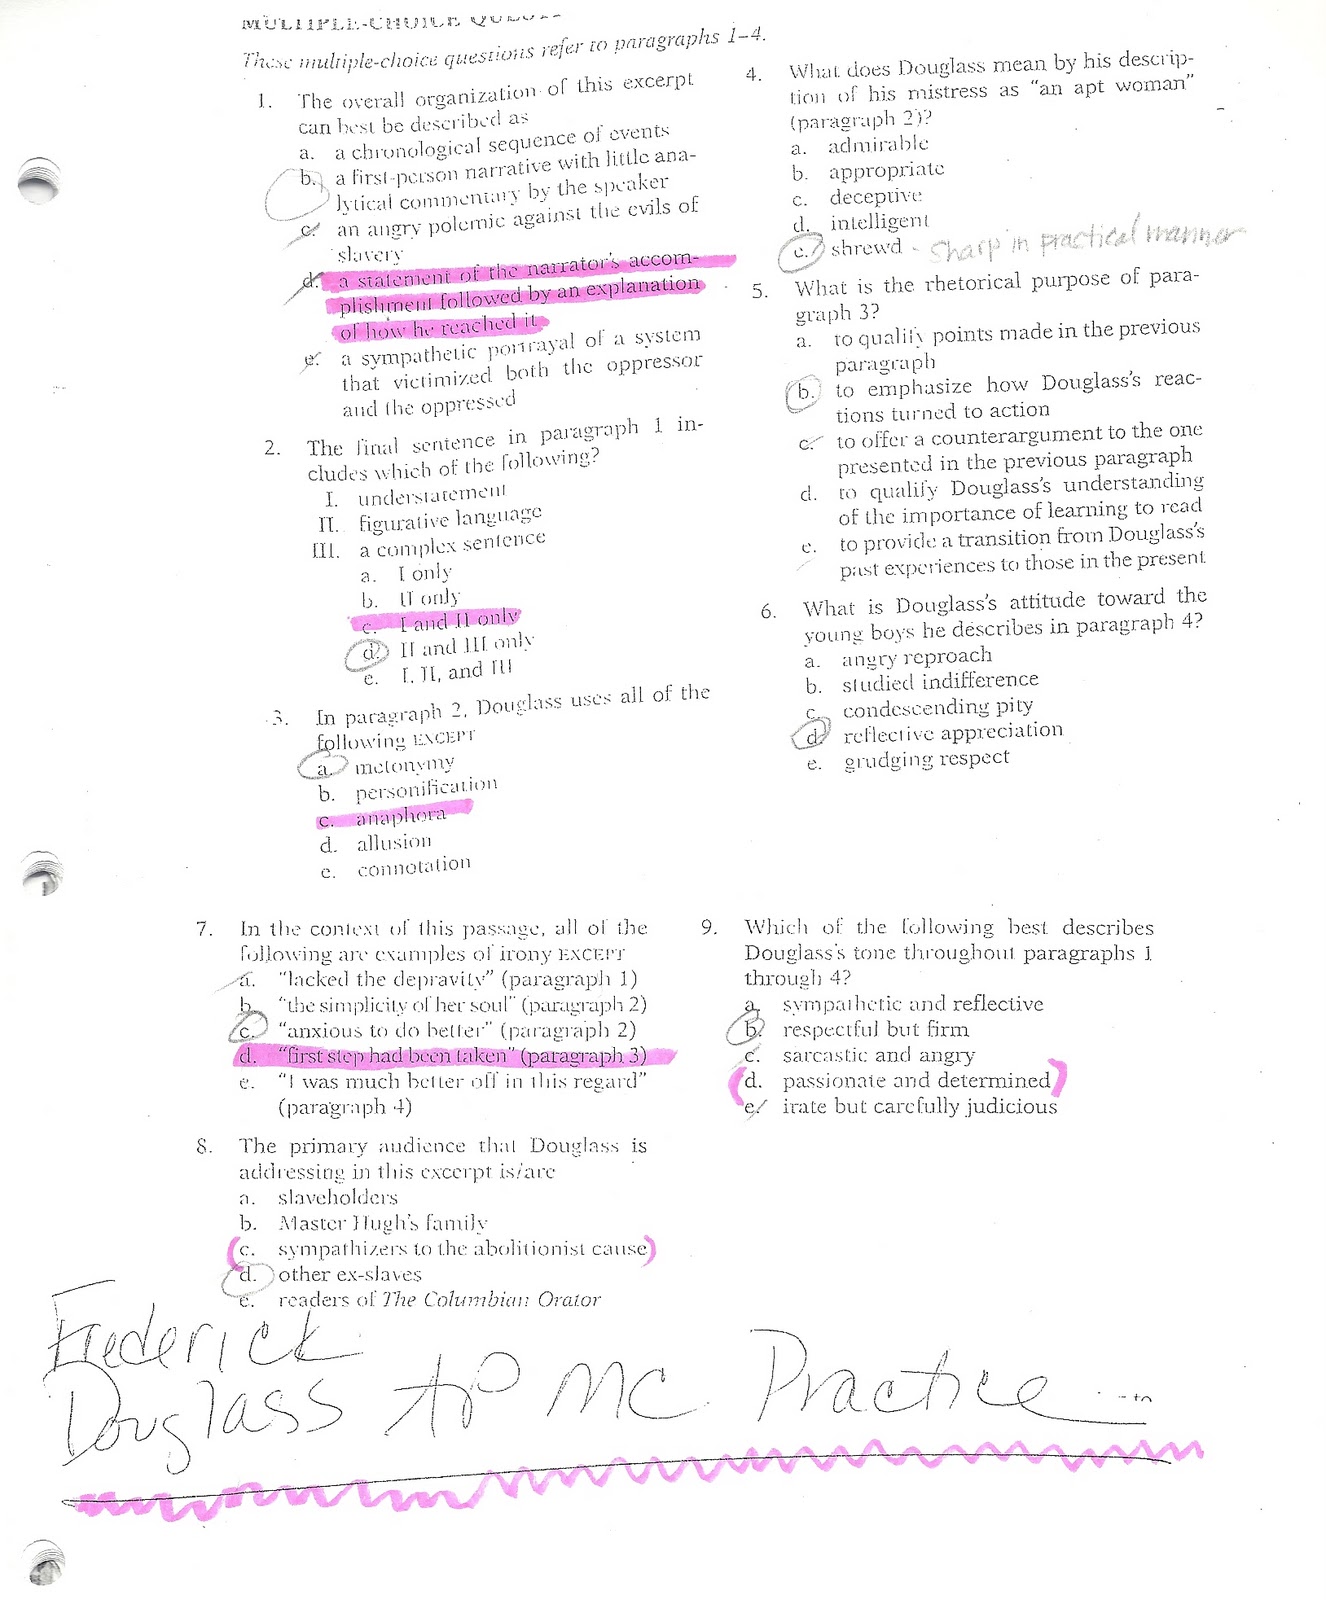 MULTIPLE-CHOICE
These multiple-choice questions refer to paragraphs 1–4.
1. The overall organization of this excerpt
can best be described as
a. a chronological sequence of events
b. a first-person narrative with little ana-
lytical commentary by the speaker
c. an angry polemic against the evils of
slavery
d. a statement of the narrator's accom-
plishment followed by an explanation
of how he reached it
e. a sympathetic portrayal of a system
that victimized both the oppressor
and the oppressed
2. The final sentence in paragraph 1 in-
cludes which of the following?
I. understatement
II. figurative language
III. a complex sentence
a. I only
b. II only
c. I and II only
d. II and III only
e. I, II, and III
3. In paragraph 2, Douglass uses all of the
following EXCEPT
a. metonymy
b. personification
c. anaphora
d. allusion
e. connotation
4. What does Douglass mean by his descrip-
tion of his mistress as "an apt woman"
(paragraph 2)?
a. admirable
b. appropriate
c. deceptive
d. intelligent
e. shrewd - sharp in practical manner
5. What is the rhetorical purpose of para-
graph 3?
a. to qualify points made in the previous
paragraph
b. to emphasize how Douglass's reac-
tions turned to action
c. to offer a counterargument to the one
presented in the previous paragraph
d. to qualify Douglass's understanding
of the importance of learning to read
e. to provide a transition from Douglass's
past experiences to those in the present
6. What is Douglass's attitude toward the
young boys he describes in paragraph 4?
a. angry reproach
b. studied indifference
c. condescending pity
d. reflective appreciation
e. grudging respect
7. In the context of this passage, all of the
following are examples of irony EXCEPT
a. "lacked the depravity" (paragraph 1)
b. "the simplicity of her soul" (paragraph 2)
c. "anxious to do better" (paragraph 2)
d. "first step had been taken" (paragraph 3)
e. "I was much better off in this regard"
(paragraph 4)
8. The primary audience that Douglass is
addressing in this excerpt is/are
a. slaveholders
b. Master Hugh's family
c. sympathizers to the abolitionist cause
d. other ex-slaves
e. readers of The Columbian Orator
9. Which of the following best describes
Douglass's tone throughout paragraphs 1
through 4?
a. sympathetic and reflective
b. respectful but firm
c. sarcastic and angry
d. passionate and determined
e. irate but carefully judicious
Frederick
Douglass AP MC Practice